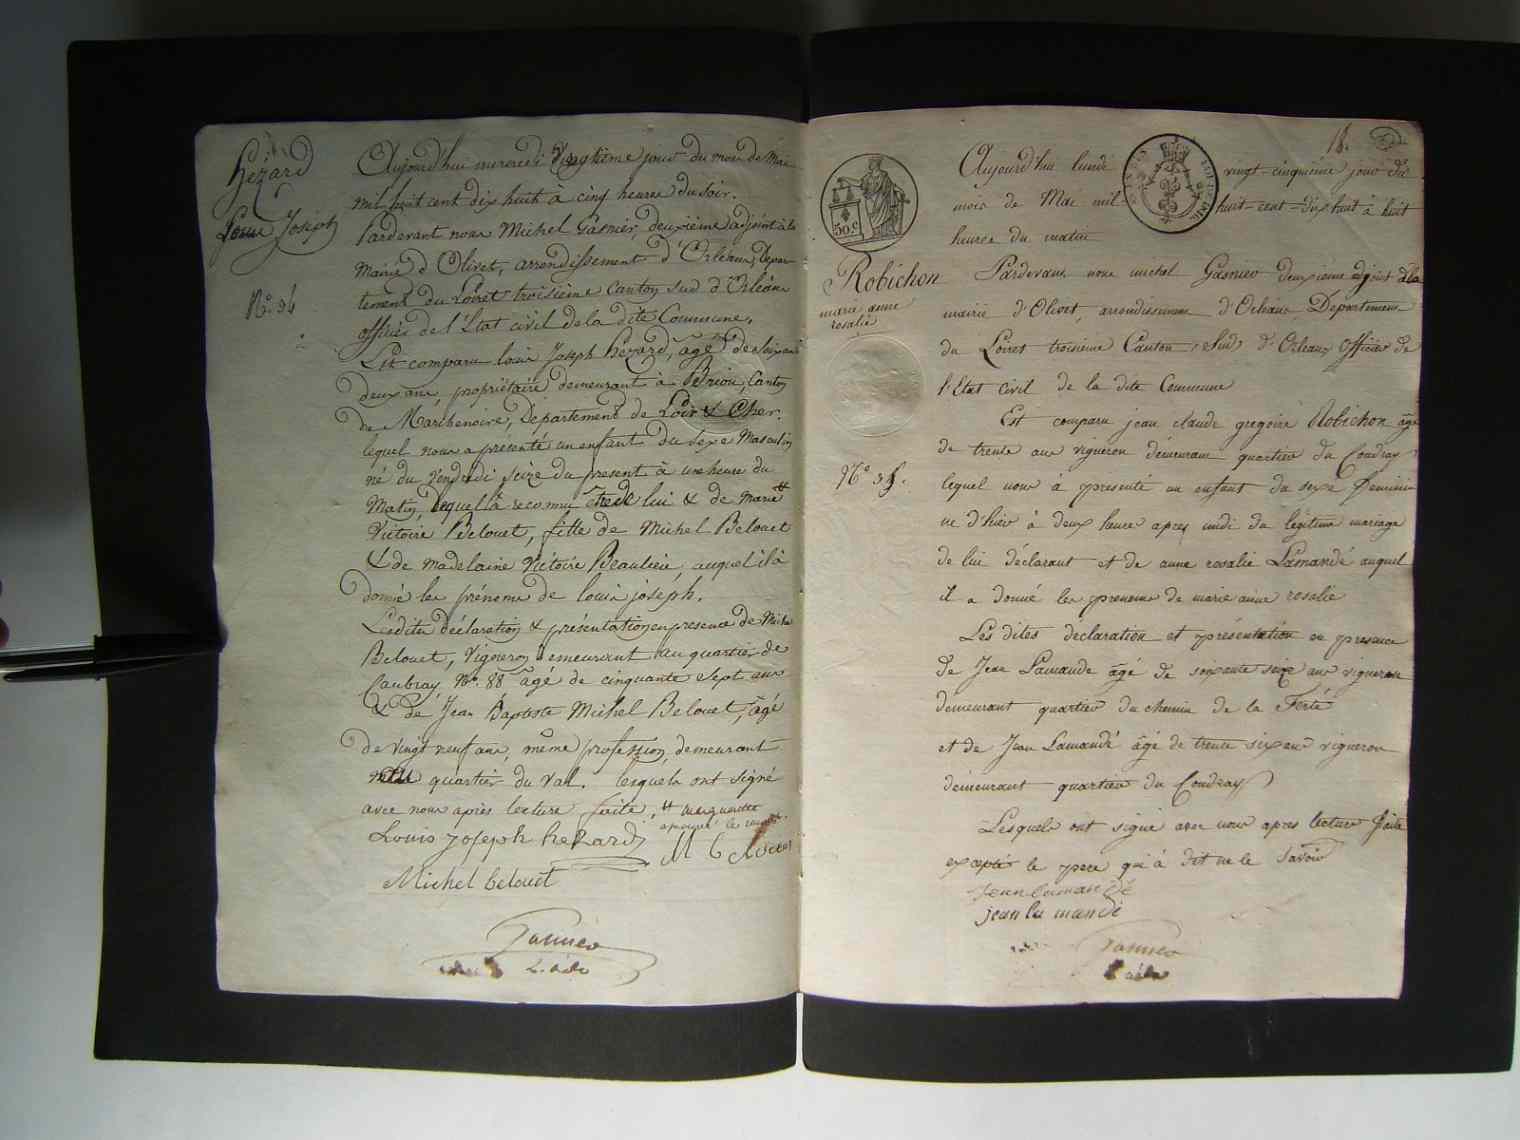 Hézard
Louis Joseph
N.º 34
Aujourd'hui mercredi vingtieme jour du mois de Mai
mil huit cent dix huit à cinq heures du soir.
Pardevant nous Michel Gasnier, deuxième adjoint à la
Mairie d'Olivet, arrondissement d'Orléans, Depar
tement du Loiret troisième Canton sud d'Orléans
officier de l'Etat civil de la dite Commune,
Est comparu louis Joseph hézard, âgé de soixante
deux ans, propriétaire demeurant à Briou, Canton
de Marchenoire, Département de Loir & Cher.
lequel nous a présenté un enfant du sexe Masculin
né du Vendredi seize du present à une heure du
Matin, lequel a reconnu être de lui & de marie #
Victoire Belouet, fille de Michel Belouet
& de Madelaine Victoire Beaulieu, auquel il a
donné les prénoms de louis joseph.
Lesdites déclaration & présentation en presence de Michel
Belouet, Vigneron demeurant au quartier de
Caubray, Nº. 88 âgé de cinquante sept ans
& de Jean Baptiste Michel Belouet, âgé
de vingt neuf ans, même profession, demeurant
quartier du Val. lesquels ont signé
avec nous après lecture faite, # marguerite
approuvé le renvoi.
Louis joseph hezard
M Belouet
Michel belouet
Gasnier
L. adj
18.
50 c
Robichon
marie anne
rosalie
Nº 35.
Aujourd'hui lundi vingt-cinquième jour du
mois de Mai mil huit-cent-dix huit à huit
heures du matin
Pardevant nous michel Gasnier deuxieme adjoint à la
mairie d'Olivet, arrondissement d'Orléans, Departement
du Loiret troisieme Canton, Sud, d'Orleans officier de
l'Etat civil de la dite Commune
Est comparu jean claude gregoire Robichon âgé
de trente ans vigneron demeurant quartier du Coudray
lequel nous à presenté un enfant du sexe feminin
né d'hier à deux heure apres midi du légitime mariage
de lui déclarant et de anne rosalie Lamandé auquel
il a donné les prenoms de marie anne rosalie
Les dites declaration et présentation en presence
de Jean Lamande âgé de soixante seize ans vigneron
demeurant quartier du chemin de la Ferté
et de Jean Lamandé âgé de trente six ans vigneron
demeurant quartier du Coudray
Lesquels ont signé avec nous apres lecture faite
excepté le pere qui à dit ne le Savoir
Jean lamandé
jean la mandé
Gasnier
L adj